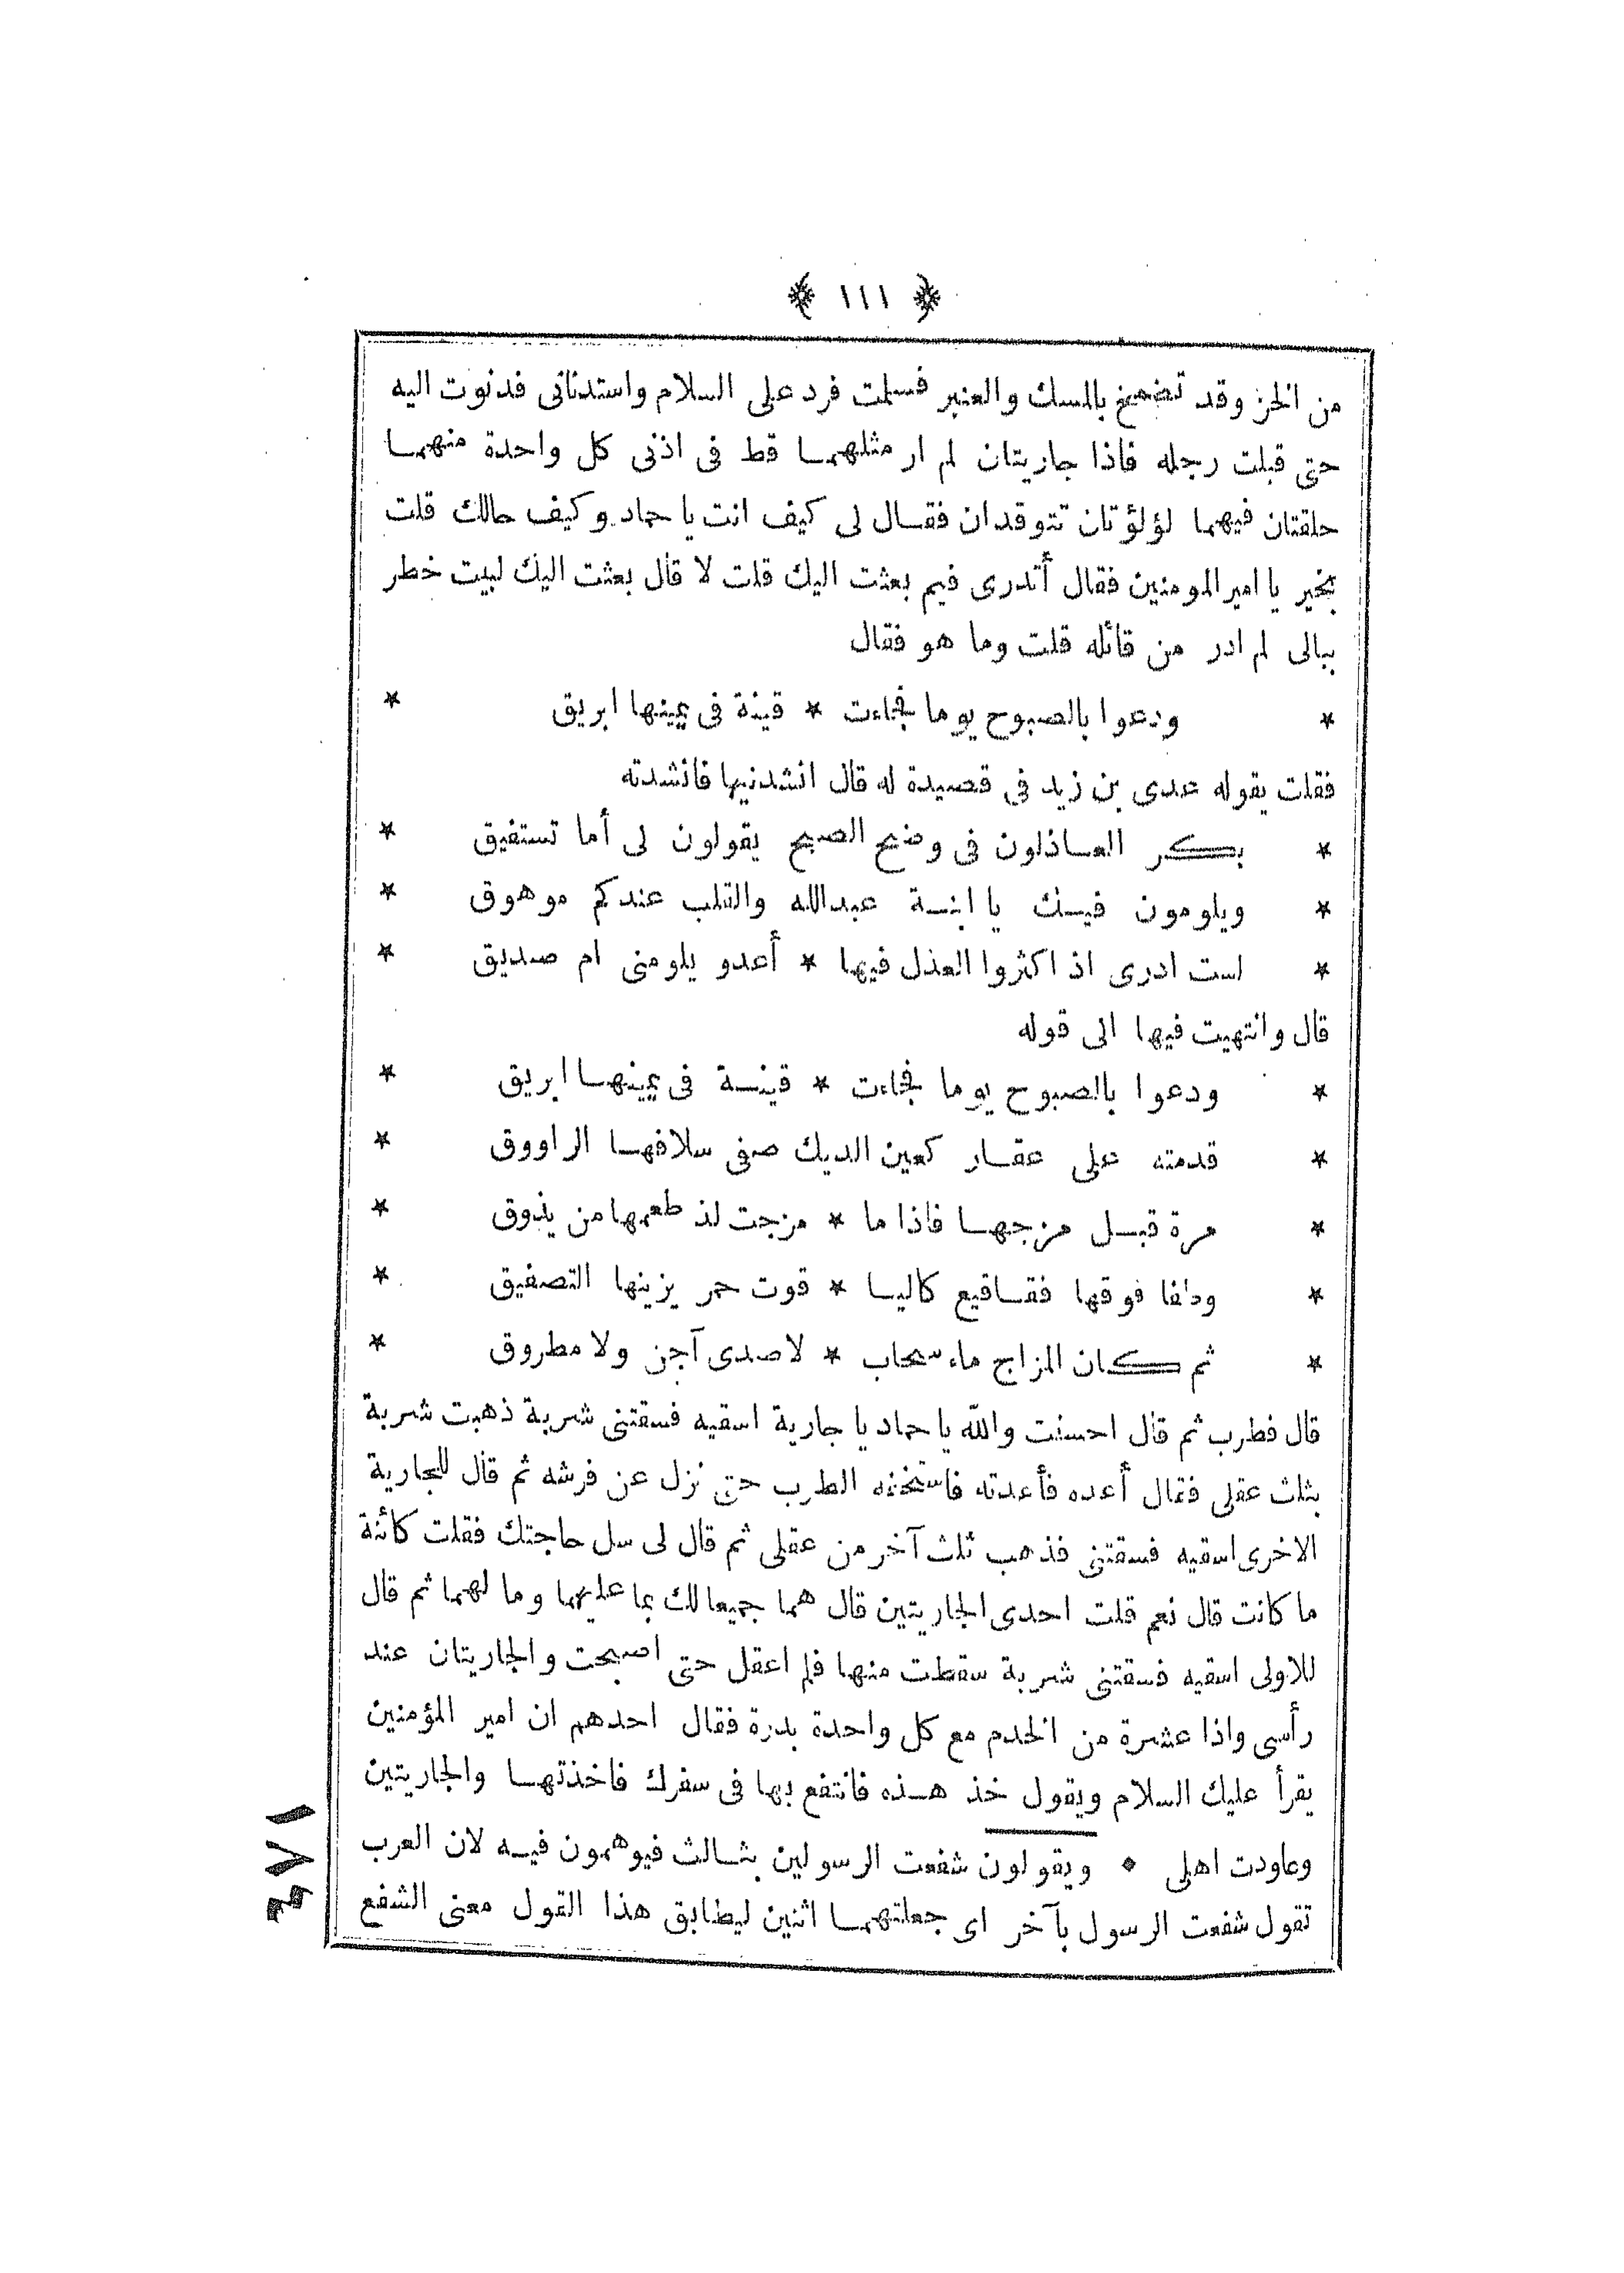 ﴿ ١١١ ﴾
من الخز وقد تضمخ بالمسك والعنبر فسلمت فرد على السلام واستدنانى فدنوت اليه
حتى قبلت رجله فاذا جاريتان لم ار مثلهما قط فى اذنى كل واحدة منهما
حلقتان فيهما لؤلؤتان تتوقدان فقال لى كيف انت يا حماد وكيف حالك قلت
بخير يا امير المومنين فقال أتدرى فيم بعثت اليك قلت لا قال بعثت اليك لبيت خطر
ببالى لم ادر من قائله قلت وما هو فقال
* ودعوا بالصبوح يوما فجاءت * قينة فى يمينها ابريق *
فقلت يقوله عدى بن زيد فى قصيدة له قال انشدنيها فانشدته
* بكر العاذلون فى وضح الصبح يقولون لى أما تستفيق *
* ويلومون فيك يا ابنة عبدالله والقلب عندكم موهوق *
* لست ادرى اذ اكثروا العذل فيها * أعدو يلومنى ام صديق *
قال وانتهيت فيها الى قوله
* ودعوا بالصبوح يوما فجاءت * قينة فى يمينها ابريق *
* قدمته على عقار كعين الديك صفى سلافها الراووق *
* مرة قبل مزجها فاذا ما * مزجت لذ طعمها من يذوق *
* وطفا فوقها فقاقيع كاليا * قوت حمر يزينها التصفيق *
* ثم كان المزاج ماء سحاب * لا صدى آجن ولا مطروق *
قال فطرب ثم قال احسنت والله يا حماد يا جارية اسقيه فسقتنى شربة ذهبت شربة
بثلث عقلى فقال أعده فأعدته فاستخفه الطرب حتى نزل عن فرشه ثم قال للجارية
الاخرى اسقيه فسقتنى فذهب ثلث آخر من عقلى ثم قال لى سل حاجتك فقلت كائنة
ما كانت قال نعم قلت احدى الجاريتين قال هما جميعا لك بما عليهما وما لهما ثم قال
للاولى اسقيه فسقتنى شربة سقطت منها فلم اعقل حتى اصبحت والجاريتان عند
رأسى واذا عشرة من الخدم مع كل واحدة بدرة فقال احدهم ان امير المؤمنين
يقرأ عليك السلام ويقول خذ هذه فانتفع بها فى سفرك فاخذتها والجاريتين
وعاودت اهلى • ويقولون شفعت الرسولين بثالث فيوهمون فيه لان العرب
تقول شفعت الرسول بآخر اى جعلتهما اثنين ليطابق هذا القول معنى الشفع